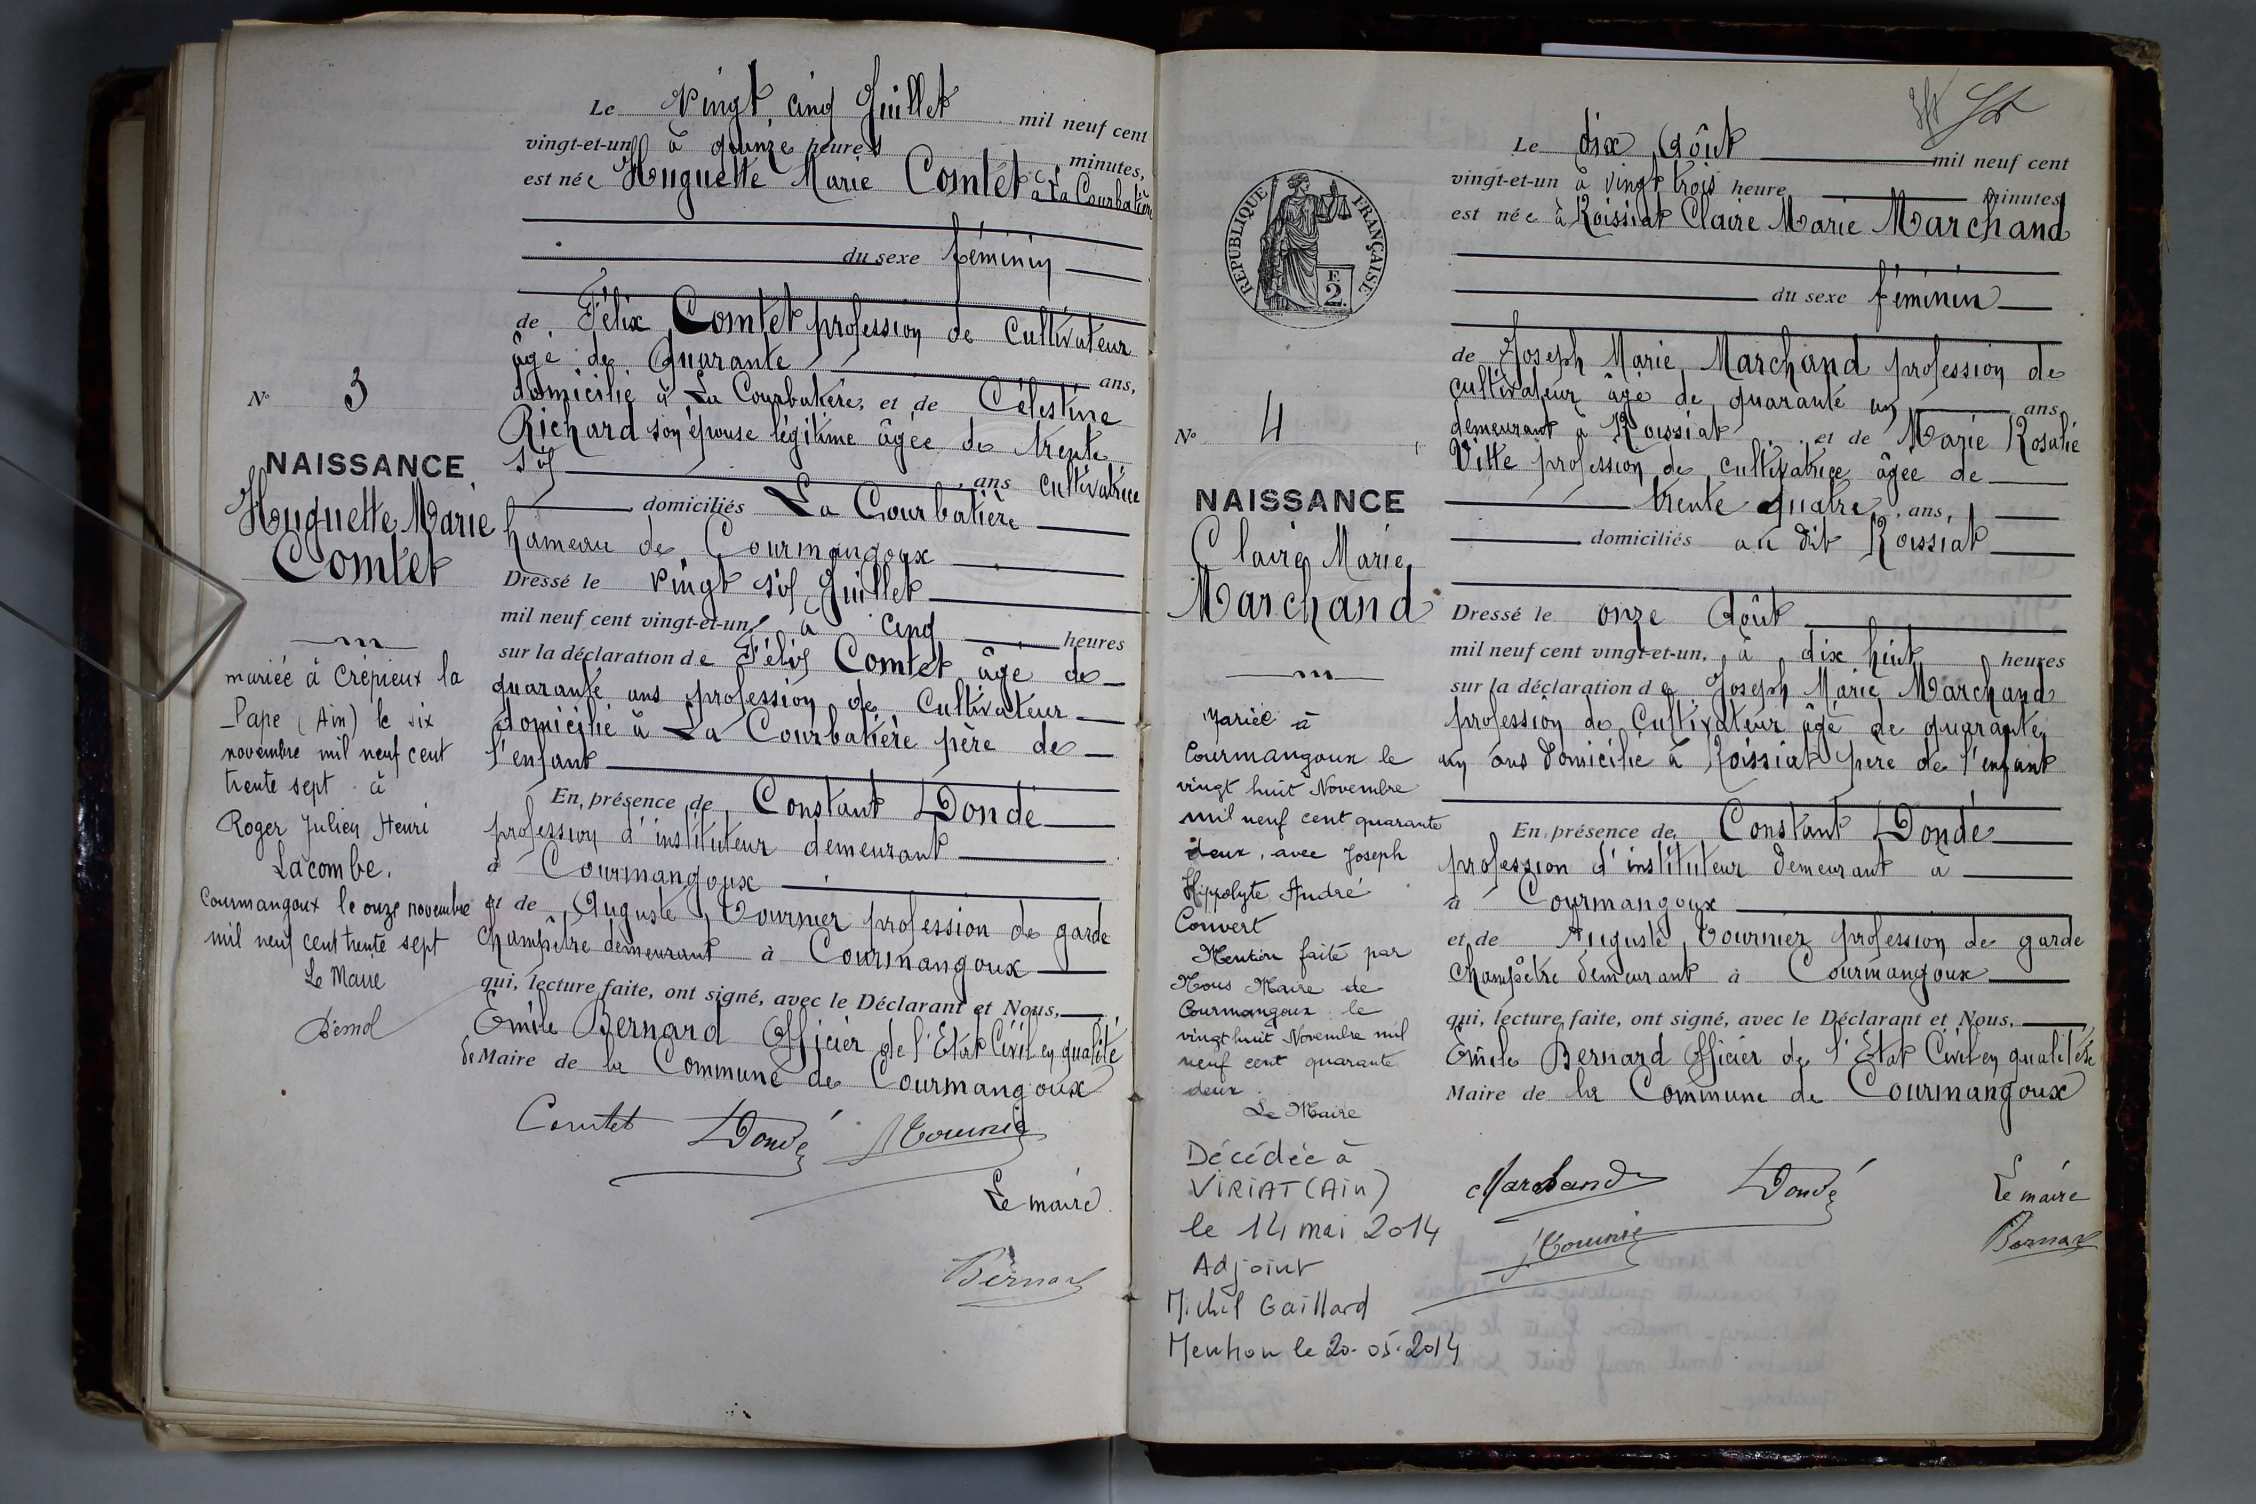 Le vingt cinq Juillet mil neuf cent
vingt-et-un à quinze heures minutes,
est née Huguette Marie Comtet à La Courbatière
du sexe féminin
de Félix Comtet profession de cultivateur
âgé de Quarante ans,
domicilié à La Courbatière, et de Célestine
Richard son épouse légitime âgée de trente
six ans cultivatrice
domiciliés La Courbatière
hameau de Courmangoux
Dressé le vingt six Juillet
mil neuf cent vingt-et-un, à cinq heures
sur la déclaration de Félix Comtet âgé de
quarante ans profession de Cultivateur
domicilié à La Courbatière père de
l'enfant
En présence de Constant Dondé
profession d'instituteur demeurant
à Courmangoux
et de Auguste Tournier profession de garde
champêtre demeurant à Courmangoux
qui, lecture faite, ont signé, avec le Déclarant et Nous,
Emile Bernard Officier de l'Etat Civil en qualité
de Maire de la Commune de Courmangoux
Comtet Dondé Tournier
Le maire
Bernard
N° 3
NAISSANCE
Huguette Marie
Comtet
mariée à Crépieux la
Pape (Ain) le six
novembre mil neuf cent
trente sept à
Roger Julien Henri
Lacombe.
Courmangoux le onze novembre
mil neuf cent trente sept
Le Maire
RÉPUBLIQUE FRANÇAISE
E
2
N° 4
NAISSANCE
Claire Marie
Marchand
Mariée à
Courmangoux le
vingt huit Novembre
mil neuf cent quarante
deux, avec Joseph
Hippolyte André
Convert
Mention faite par
Nous Maire de
Courmangoux le
vingt huit Novembre mil
neuf cent quarante
deux.
Le Maire
Décédée à
VIRIAT (Ain)
le 14 mai 2014
Adjoint
Michel Gaillard
Mention le 20-05-2014
Le dix Août mil neuf cent
vingt-et-un à vingt trois heure minutes
est née à Roissiat Claire Marie Marchand
du sexe féminin
de Joseph Marie Marchand profession de
cultivateur âgé de quarante un ans,
demeurant à Roissiat et de Marie Rosalie
Vitte profession de cultivatrice âgée de
trente quatre, ans,
domiciliés au dit Roissiat
Dressé le onze Août
mil neuf cent vingt-et-un, à dix huit heures
sur la déclaration de Joseph Marie Marchand
profession de Cultivateur âgé de quarante
un ans domicilié à Roissiat père de l'enfant
En présence de Constant Dondé
profession d'instituteur demeurant à
à Courmangoux
et de Auguste Tournier profession de garde
champêtre demeurant à Courmangoux
qui, lecture faite, ont signé, avec le Déclarant et Nous,
Emile Bernard Officier de l'Etat Civil en qualité de
Maire de la Commune de Courmangoux
Marchand Dondé Le maire
Tournier Bernard